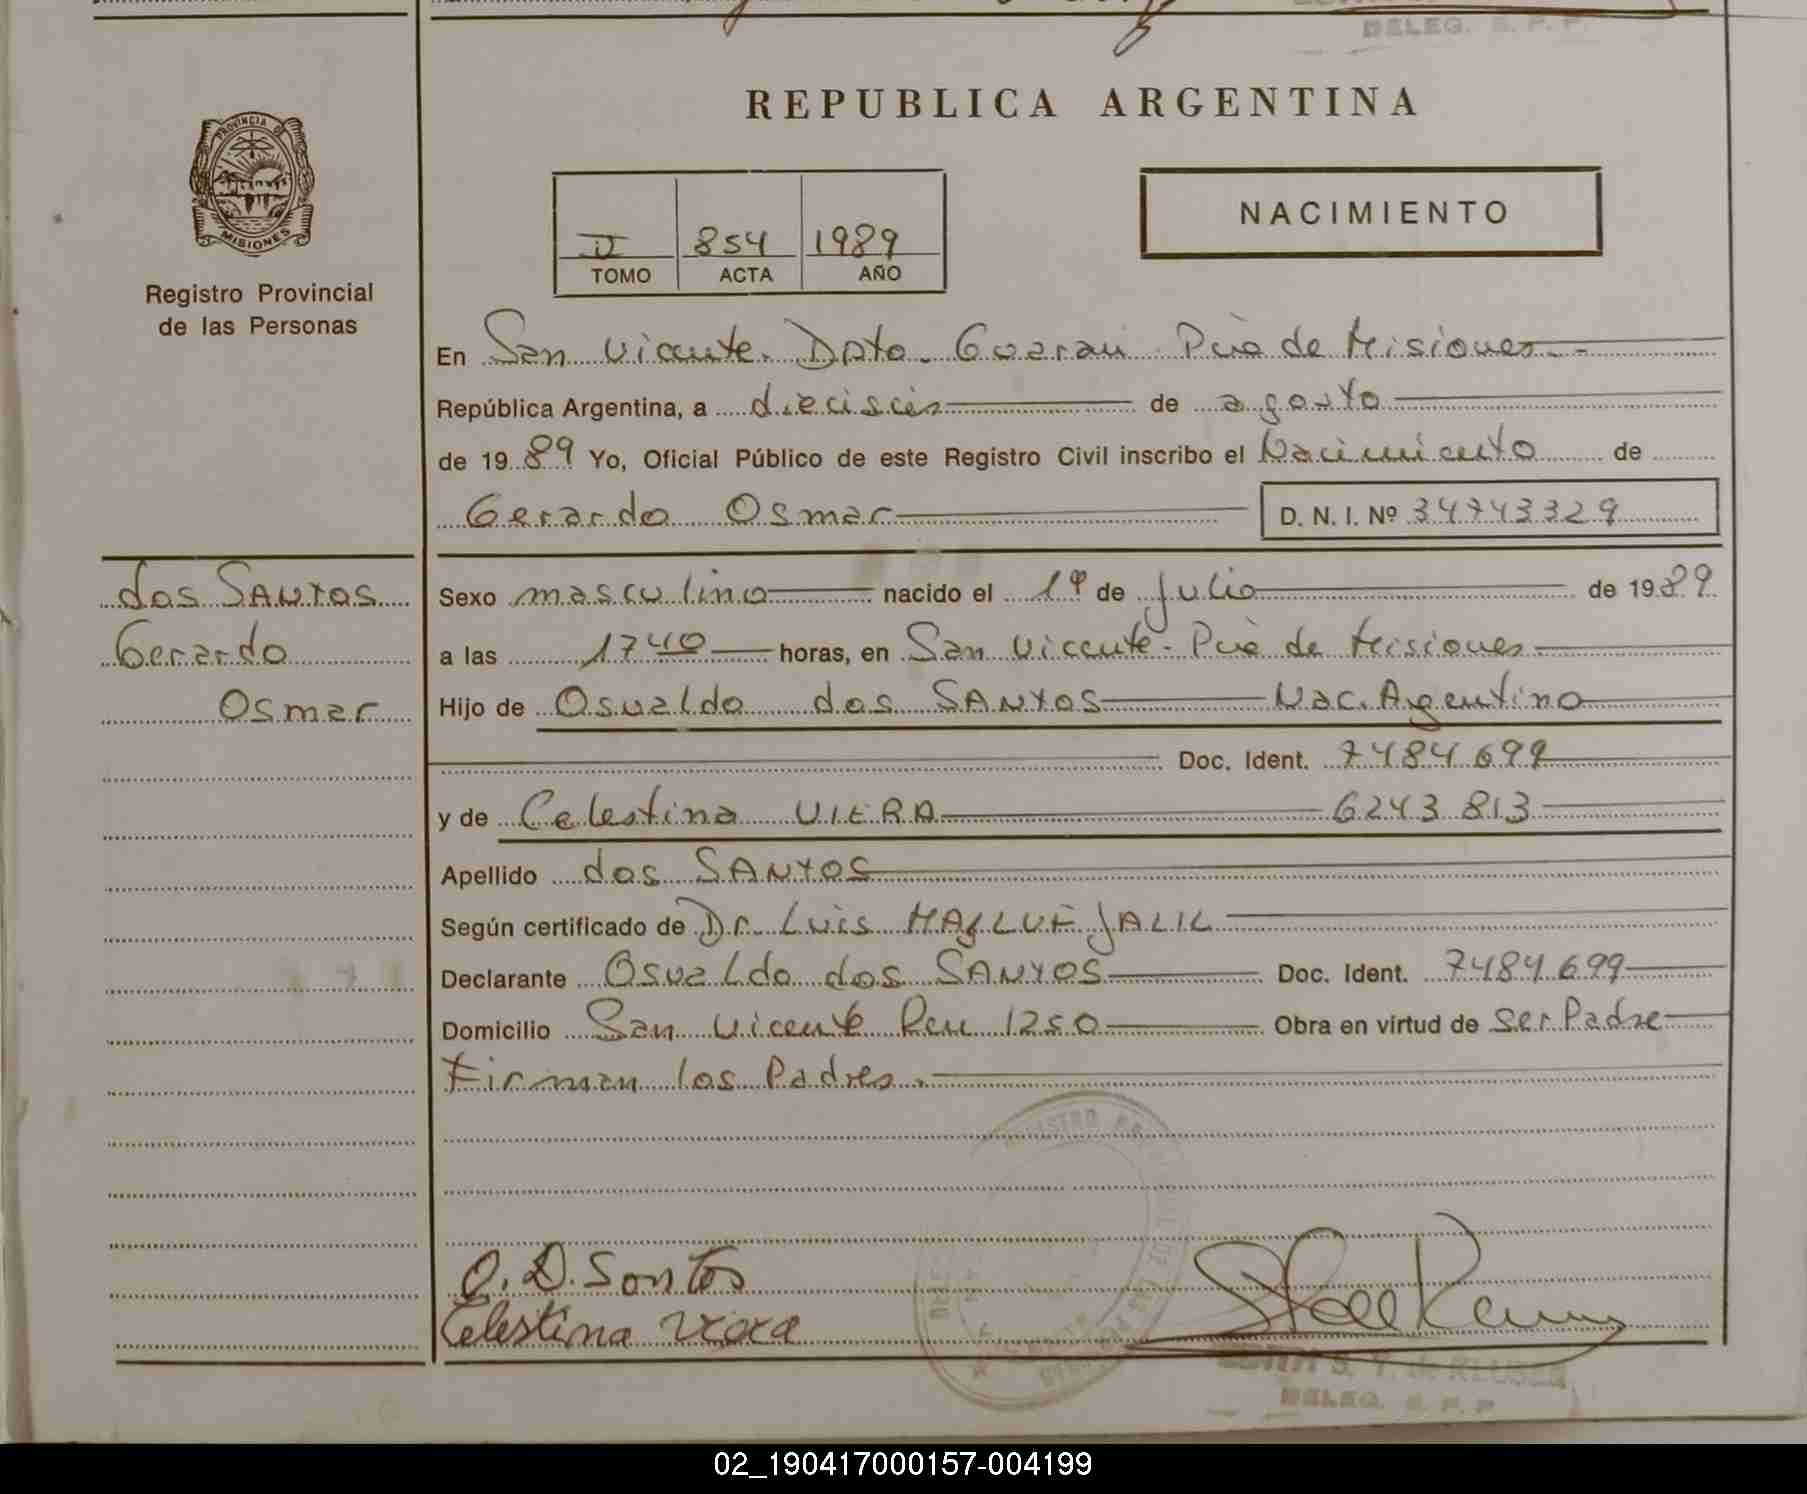 DELEG. S. P. P.
REPUBLICA ARGENTINA
PROVINCIA DE
MISIONES
Registro Provincial
de las Personas
NACIMIENTO
II 854 1989
TOMO ACTA AÑO
En San Vicente. Dpto. Guarani Pcia de Misiones.-
República Argentina, a dieciseis de agosto
de 1989 Yo, Oficial Público de este Registro Civil inscribo el Nacimiento de
Gerardo Osmar D. N. I. Nº 34743329
dos SANTOS
Gerardo
Osmar
Sexo masculino nacido el 1º de Julio de 1989
a las 17 40 horas, en San Vicente - Pcia de Misiones
Hijo de Osvaldo dos SANTOS Nac. Argentino
Doc. Ident. 7484699
y de Celestina VIERA 6243813
Apellido dos SANTOS
Según certificado de Dr. Luis JALIL
Declarante Osvaldo dos SANTOS Doc. Ident. 7484699
Domicilio San Vicente 1250 Obra en virtud de ser Padre
Firman los Padres.
O. D. Santos
Celestina
DELEG. S. P. P.
02_190417000157-004199